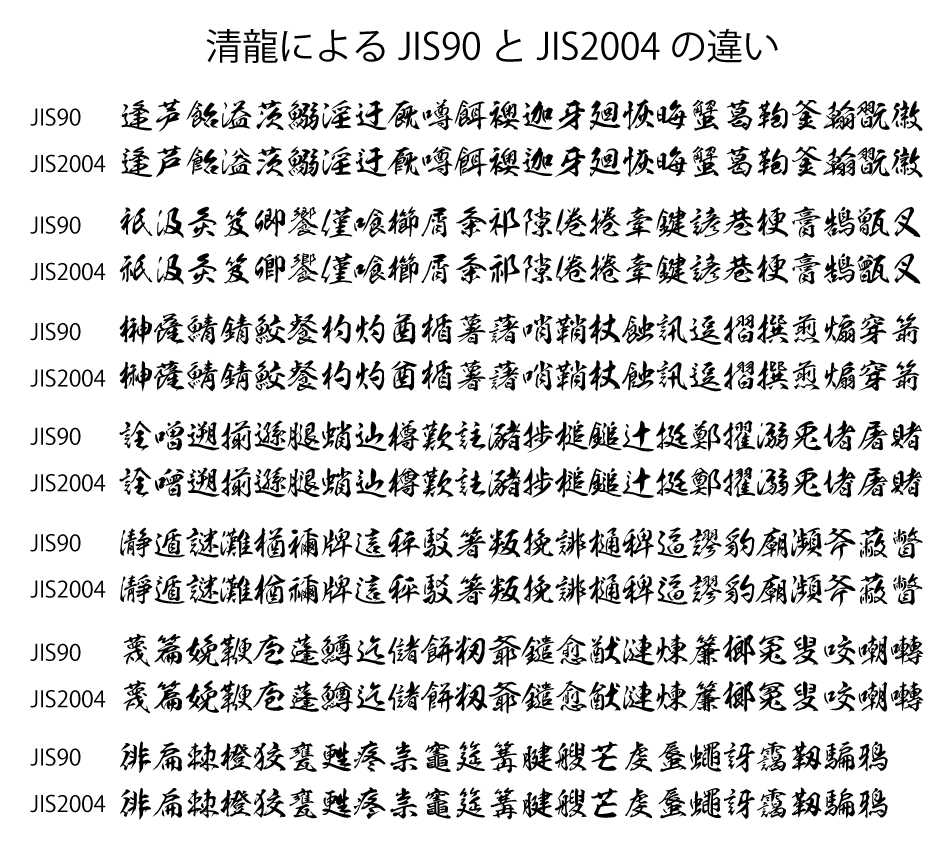 清龍による JIS90 と JIS2004 の違い
JIS90 逢芦飴溢茨鰯淫迂厩噂餌襖迦牙廻恢晦蟹葛鞄釜翰翫徽
JIS2004 逢芦飴溢茨鰯淫迂厩噂餌襖迦牙廻恢晦蟹葛鞄釜翰翫徽
JIS90 祇汲灸笈卿饗僅喰櫛屑粂祁隙倦捲牽鍵諺巷梗膏鵠甑叉
JIS2004 祇汲灸笈卿饗僅喰櫛屑粂祁隙倦捲牽鍵諺巷梗膏鵠甑叉
JIS90 榊薩鯖錆鮫餐杓灼酋楯薯藷哨鞘杖蝕訊逗摺撰煎煽穿箭
JIS2004 榊薩鯖錆鮫餐杓灼酋楯薯藷哨鞘杖蝕訊逗摺撰煎煽穿箭
JIS90 詮噌遡揃遜腿蛸辿樽歎註瀦捗槌鎚辻挺鄭擢溺兎堵屠賭
JIS2004 詮噌遡揃遜腿蛸辿樽歎註瀦捗槌鎚辻挺鄭擢溺兎堵屠賭
JIS90 瀞遁謎灘楢禰牌這秤駁箸叛挽誹樋稗逼謬豹廟瀕斧蔽瞥
JIS2004 瀞遁謎灘楢禰牌這秤駁箸叛挽誹樋稗逼謬豹廟瀕斧蔽瞥
JIS90 蔑篇娩鞭庖蓬鱒迄儲餅籾爺鑓愈猷漣煉簾榔冤叟咬嘲囀
JIS2004 蔑篇娩鞭庖蓬鱒迄儲餅籾爺鑓愈猷漣煉簾榔冤叟咬嘲囀
JIS90 徘扁棘橙狡甕甦疼祟竈筵篝腱艘芒虔蜃蠅訝靄靱騙鴉
JIS2004 徘扁棘橙狡甕甦疼祟竈筵篝腱艘芒虔蜃蠅訝靄靱騙鴉